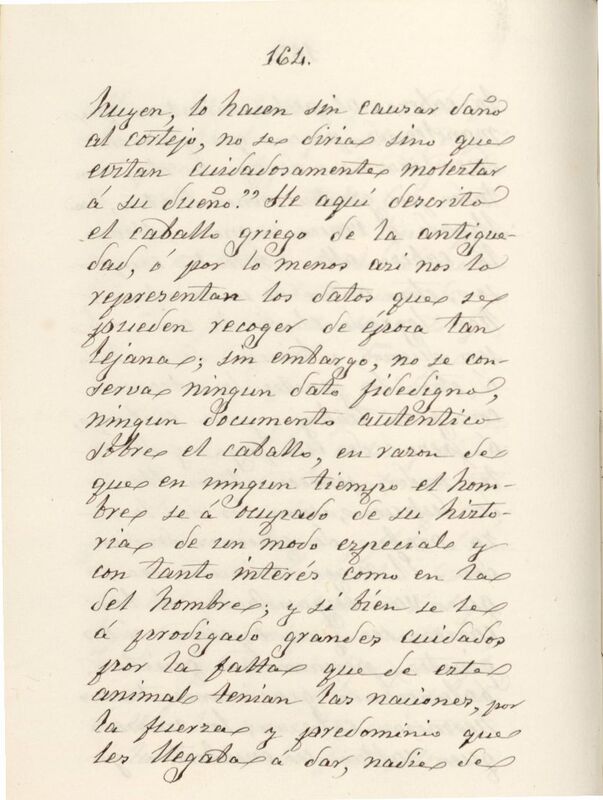 164.
huyen, lo hacen sin causar daño
al cortejo, no se diria sino que
evitan cuidadosamente molestar
á su dueño." He aquí descrito
el caballo griego de la antigue-
dad, ó por lo menos asi nos lo
representan los datos que se
pueden recoger de época tan
lejana; sin embargo, no se con-
serva ningun dato fidedigno,
ningun documento auténtico
sobre el caballo, en razon de
que en ningun tiempo el hom-
bre se á ocupado de su histo-
ria de un modo especial y
con tanto interés como en la
del hombre; y si bien se le
á prodigado grandes cuidados
por la falta que de este
animal tenian las naciones, por
la fuerza y predominio que
les llegaba á dar, nadie de